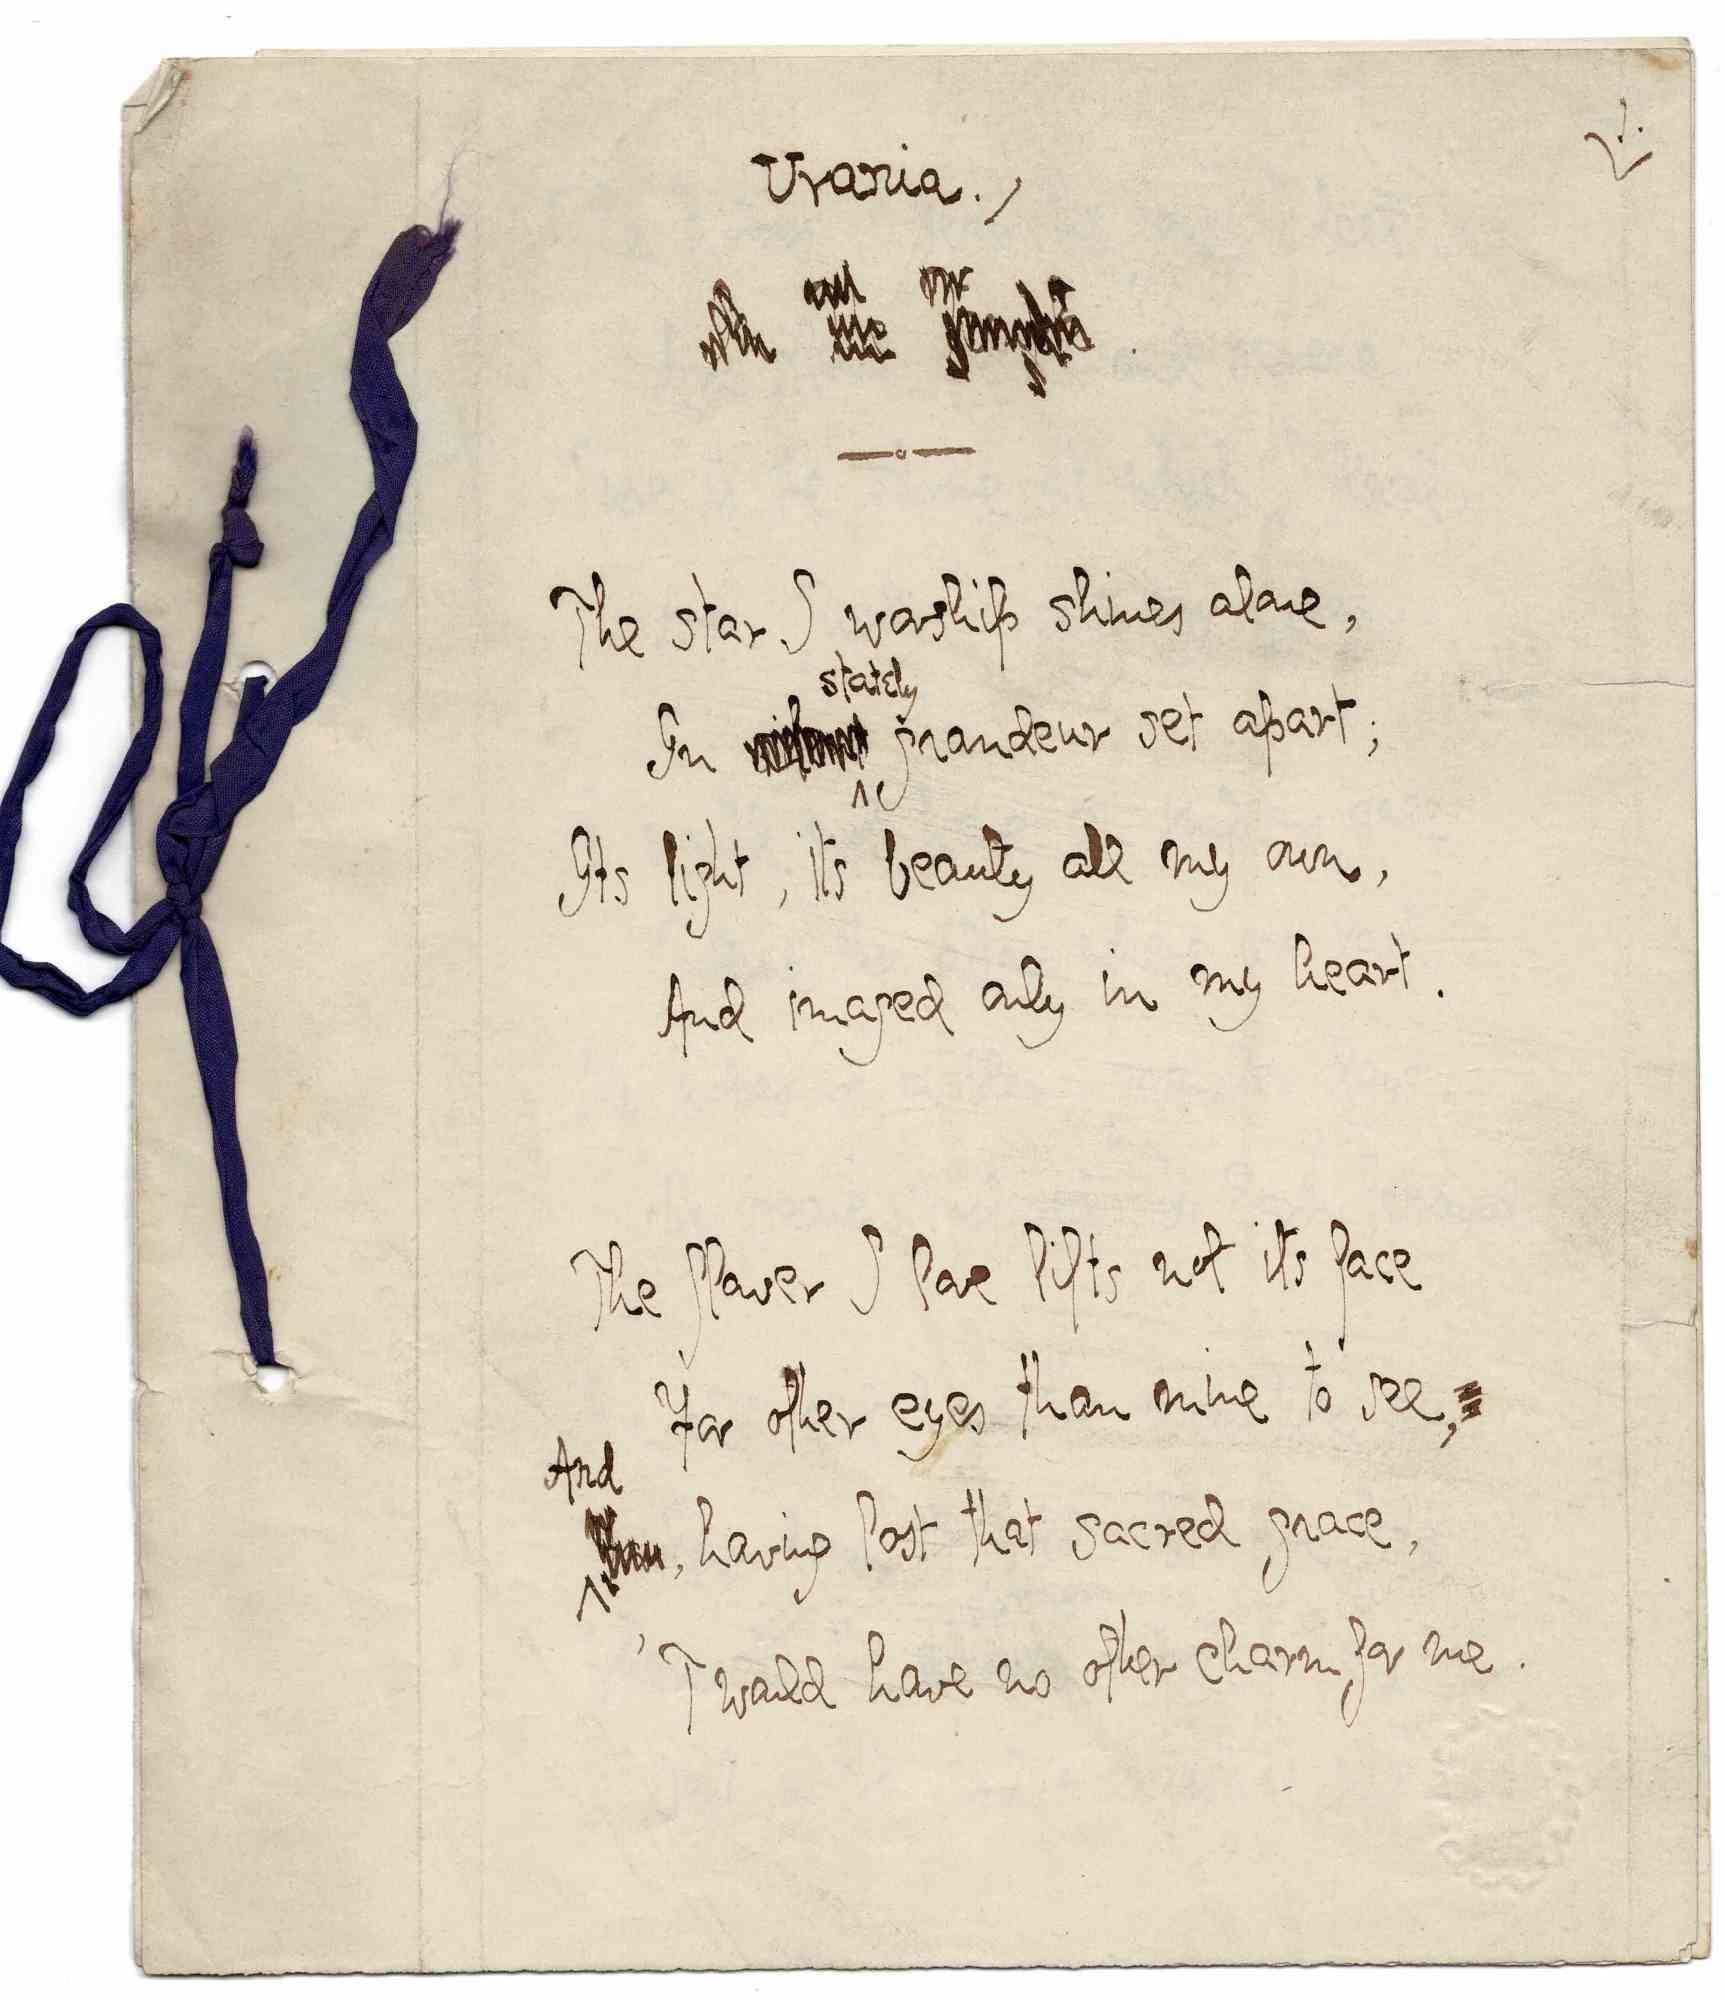 Urania.
The star I worship shines alone,
stately
In grandeur set apart;
Its light, its beauty all my own,
And imaged only in my heart.
The flower I love lifts not its face
For other eyes than mine to see,
And
, having lost that sacred grace,
'Twould have no other charm for me.